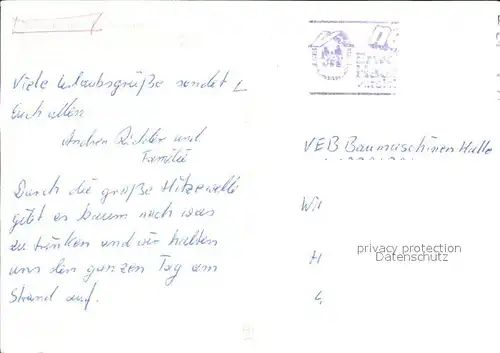 Viele Urlaubsgrüße sendet
Euch allen
Andrea Richter und
Familie
Durch die große Hitzewelle
gibt es kaum noch was
zu trinken und wir halten
uns den ganzen Tag am
Strand auf.
VEB Baumaschinen Halle
Wil
H
4
privacy protection
Datenschutz